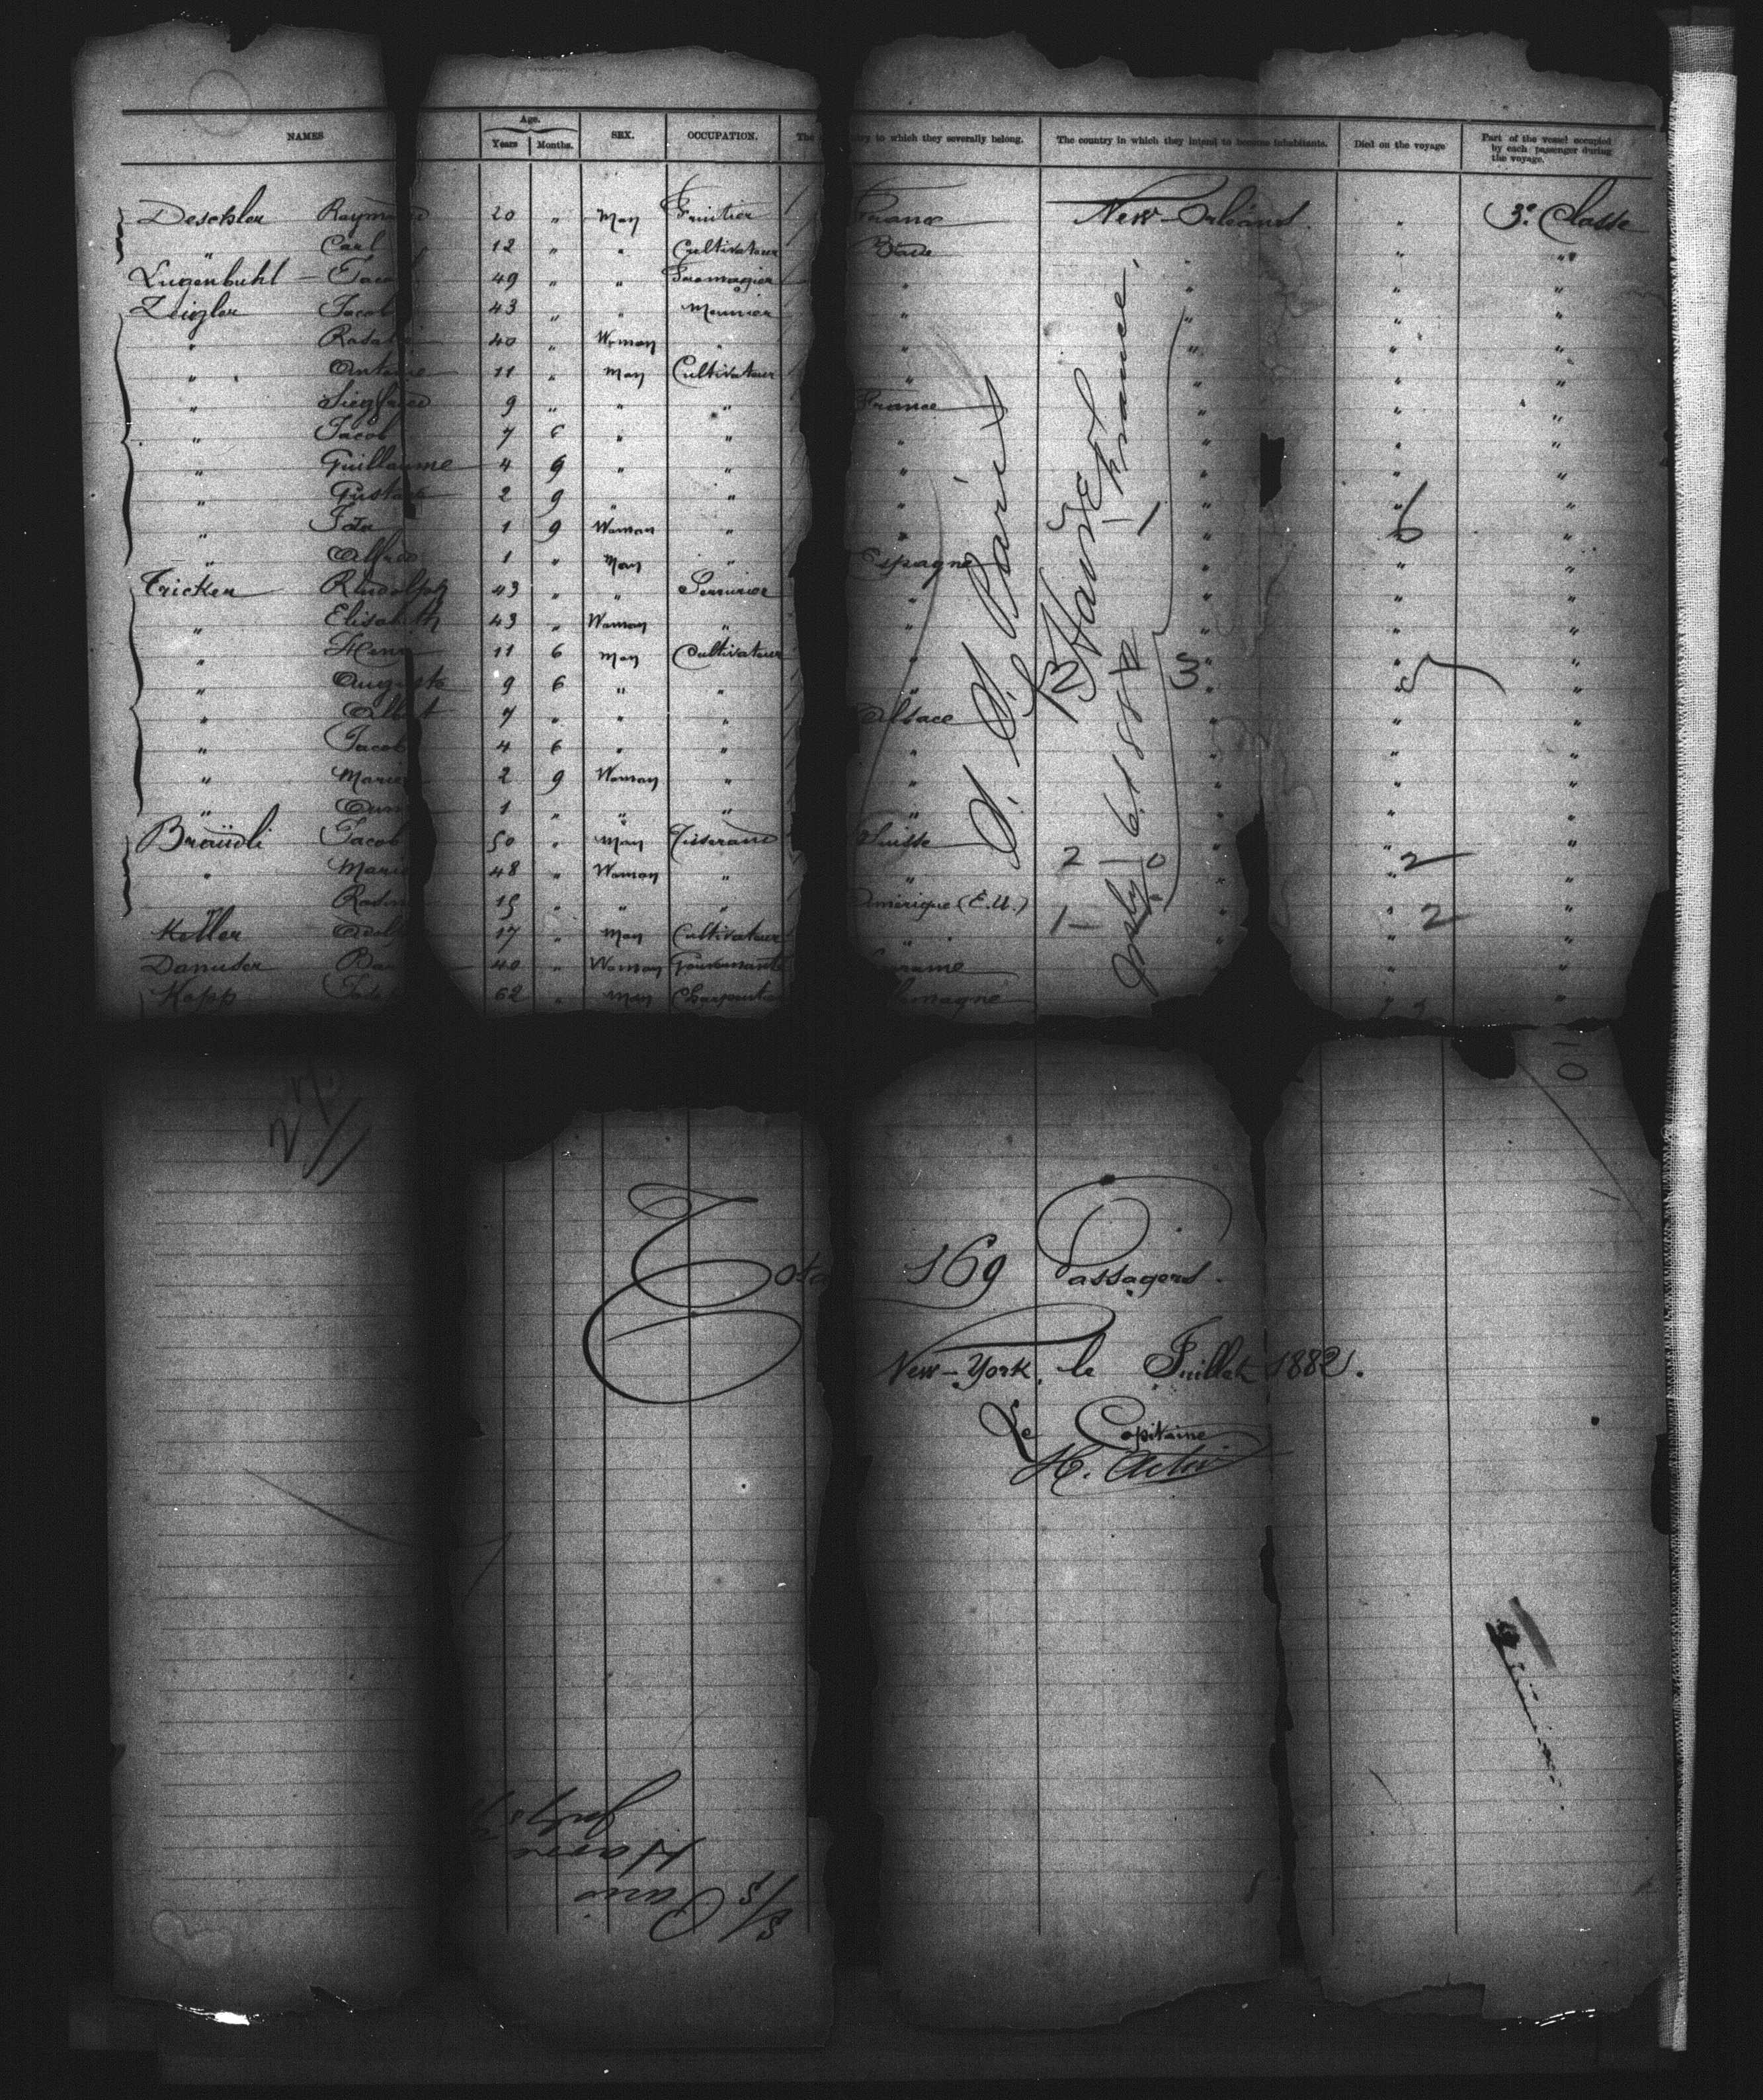 NAMES Age. Years Months. SEX. OCCUPATION. The ry to which they severally belong. The country in which they intend to become inhabitants. Died on the voyage Part of the vessel occupied by each passenger during the voyage.
Deschler Raymond 20 " Man Fruitier France New-Orléans. " 3e. Classe
" Carl 12 " " Cultivateur Bade " " "
Lugenbuhl Jaco 49 " " Fromagier " " " "
Zeigler Jacob 43 " " Meunier " " " "
" Rosalie 40 " Woman " " " " "
" Antoine 11 " Man Cultivateur " " " "
" Siegfried 9 " " " France " " "
" Jacob 7 6 " " " " " "
" Guillaume 4 9 " " " " " "
" Gustave 2 9 " " " " " "
" 1 9 Woman " " " " "
" Alfred 1 " Man " Espagne " " "
Tricker Rudolph 43 " " Serrurier " " " "
" Elisabeth 43 " Woman " " " " "
" Henri 11 6 Man Cultivateur " " " "
" Auguste 9 6 " " " " " "
" Albert 7 " " " Alsace " " "
" Jacob 4 6 " " " " " "
" Marie 2 9 Woman " " " " "
" 1 " " " " " " "
Braündli Jacob 50 " Man Tisserand Suisse " " "
" Marie 48 " Woman " " " " "
" Rosin 19 " " " Amérique (E.U.) " " "
Keller Adol 17 " Man Cultivateur " " " "
Danuser Ba 40 " Woman Gouvernante rraine " "
Kapp 62 " Man Charpent emagne "
S. S. Paris
Havre France
July 6. 1882
6
5
3
2
2
2 10
1
Tota 169 Passagers.
New-York, le Juillet 1882.
Le Capitaine
S/S Paris
Havre
July